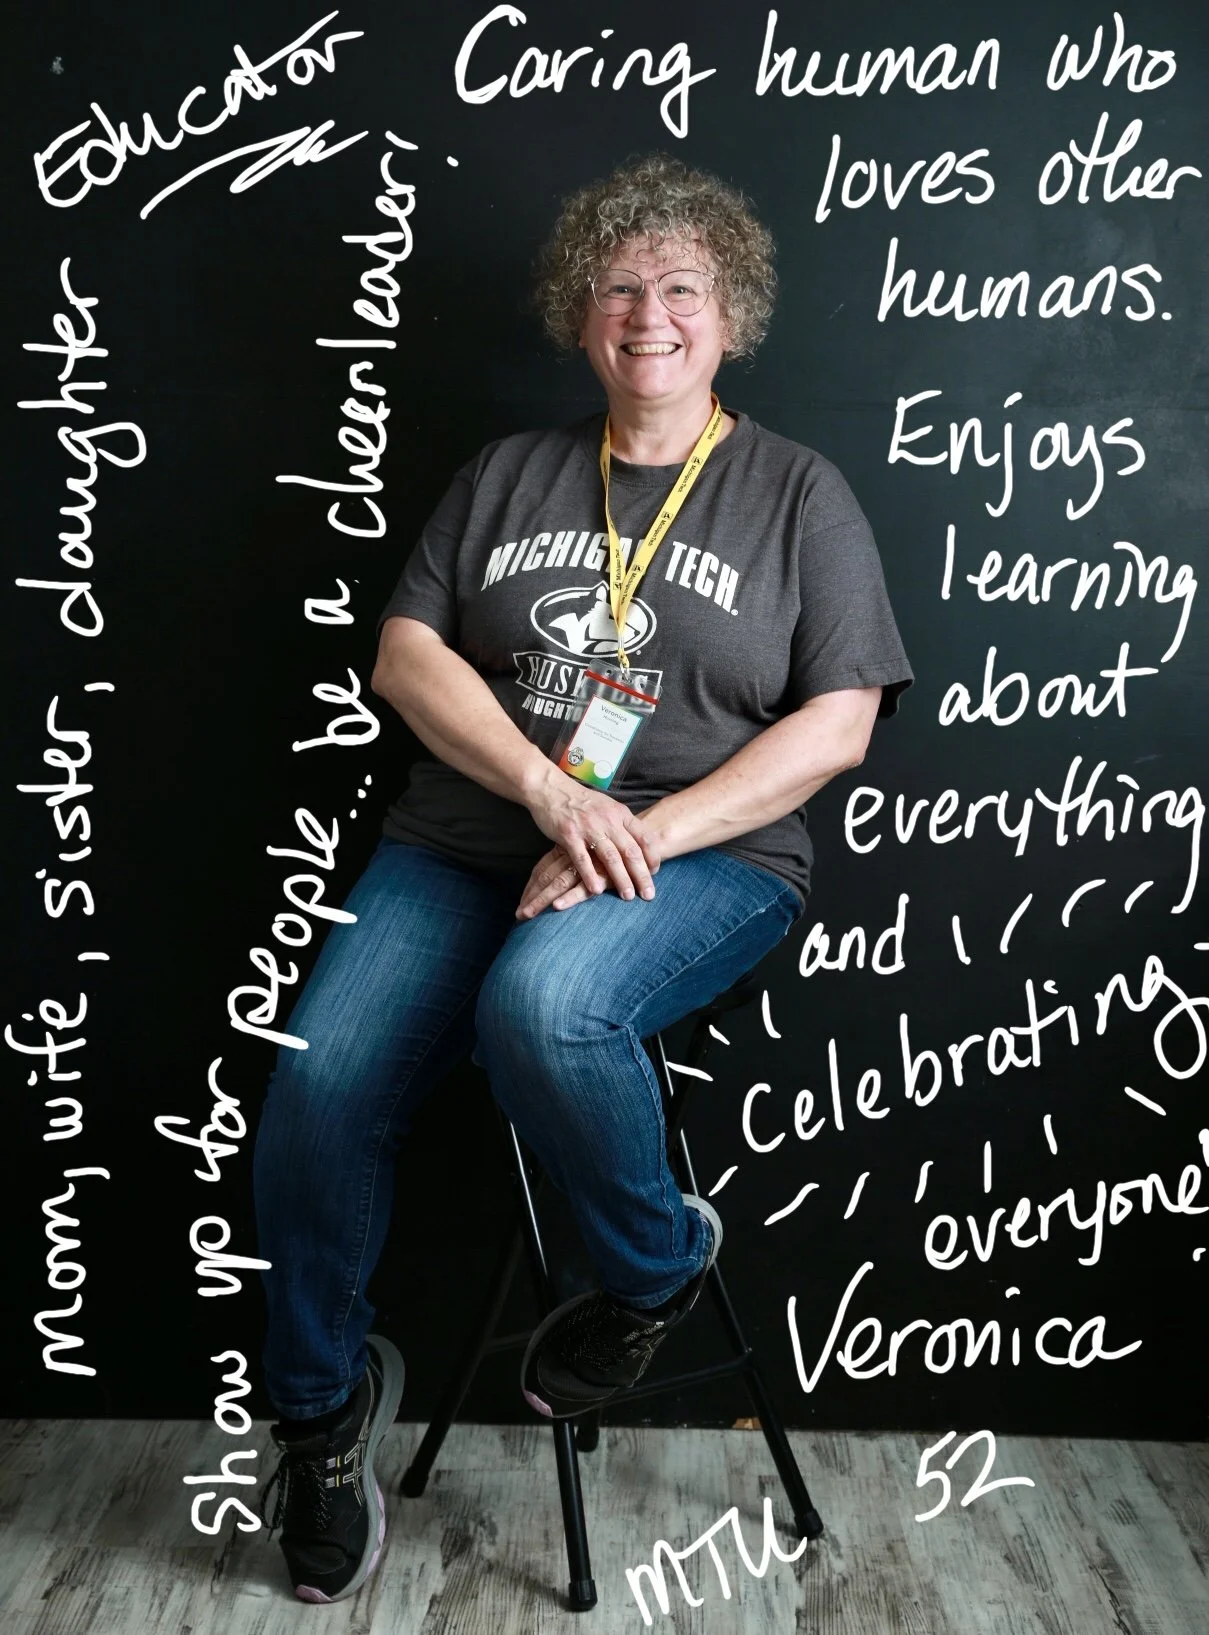 Educator
Caring human who
loves other
humans.
Enjoys
learning
about
everything
and
Celebrating
everyone!
Veronica
52
MTU
mom, wife, sister, daughter
Show up for people... be a cheerleader!
MICHIGAN TECH
HUSKIES
HOUGHTON
Michigan Tech
Veronica